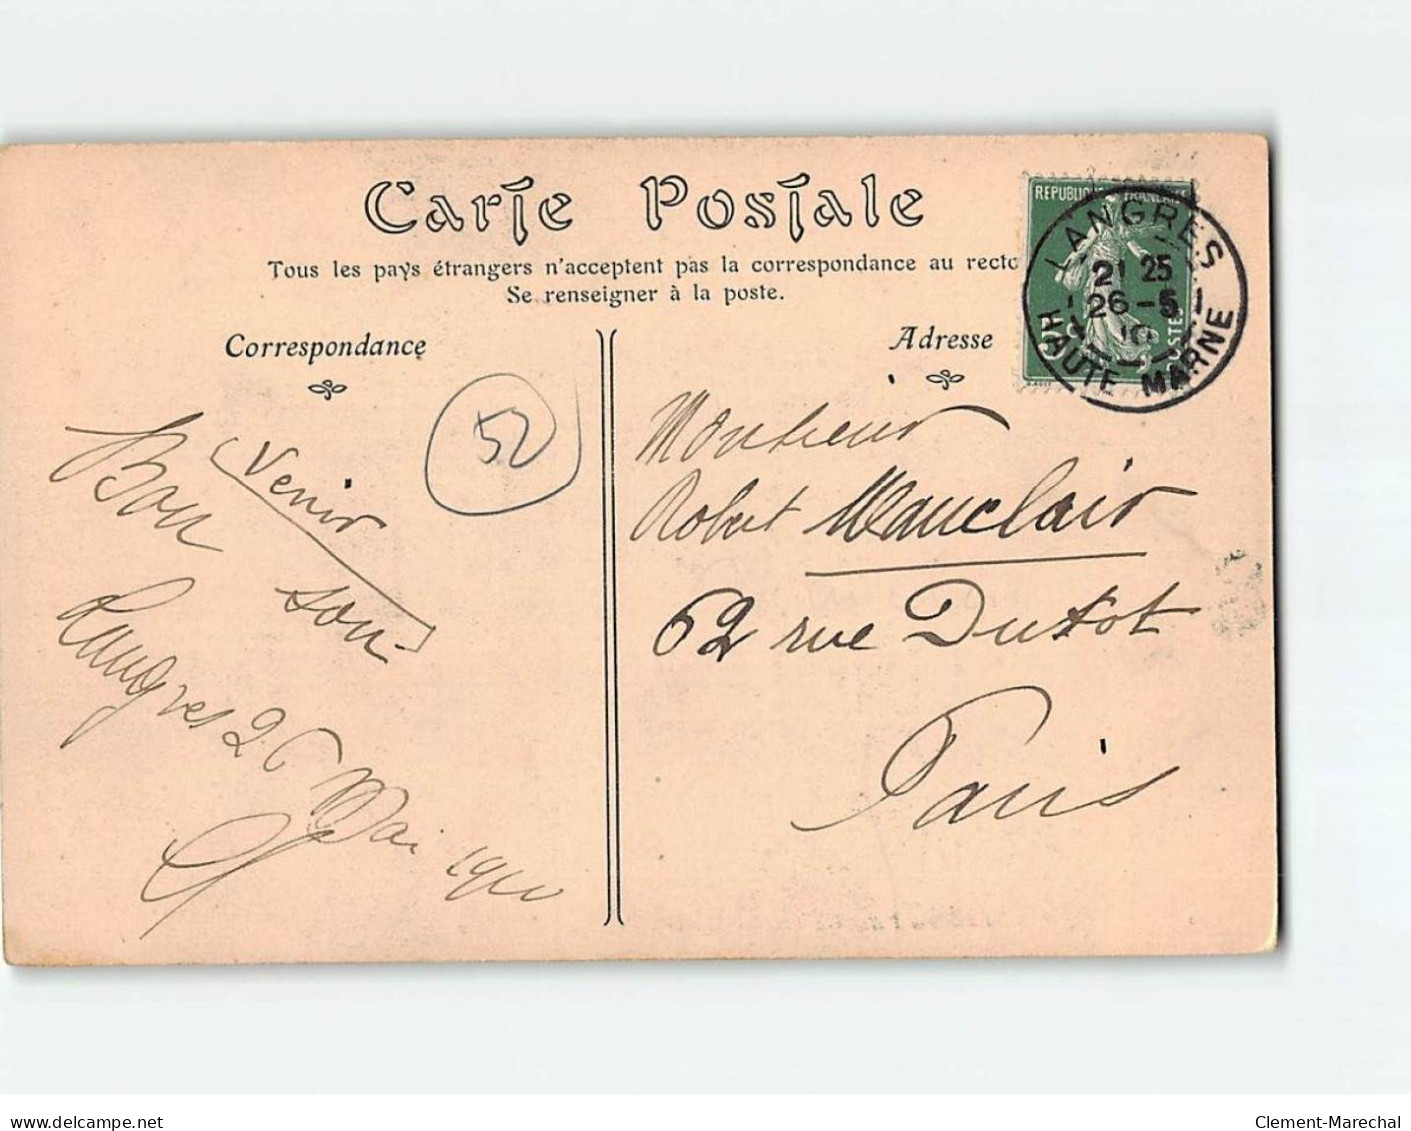 Carte Postale
Tous les pays étrangers n'acceptent pas la correspondance au recto
Se renseigner à la poste.
Correspondance
Adresse
REPUBLIQUE FRANÇAISE
POSTES
LANGRES
2' 25
26-5
10
HAUTE MARNE
52
Bon
Venir
sou-
Langres 26 Mai 1910
Monsieur
Robert Mauclair
62 rue Dutot
Paris
www.delcampe.net
Clement-Marechal